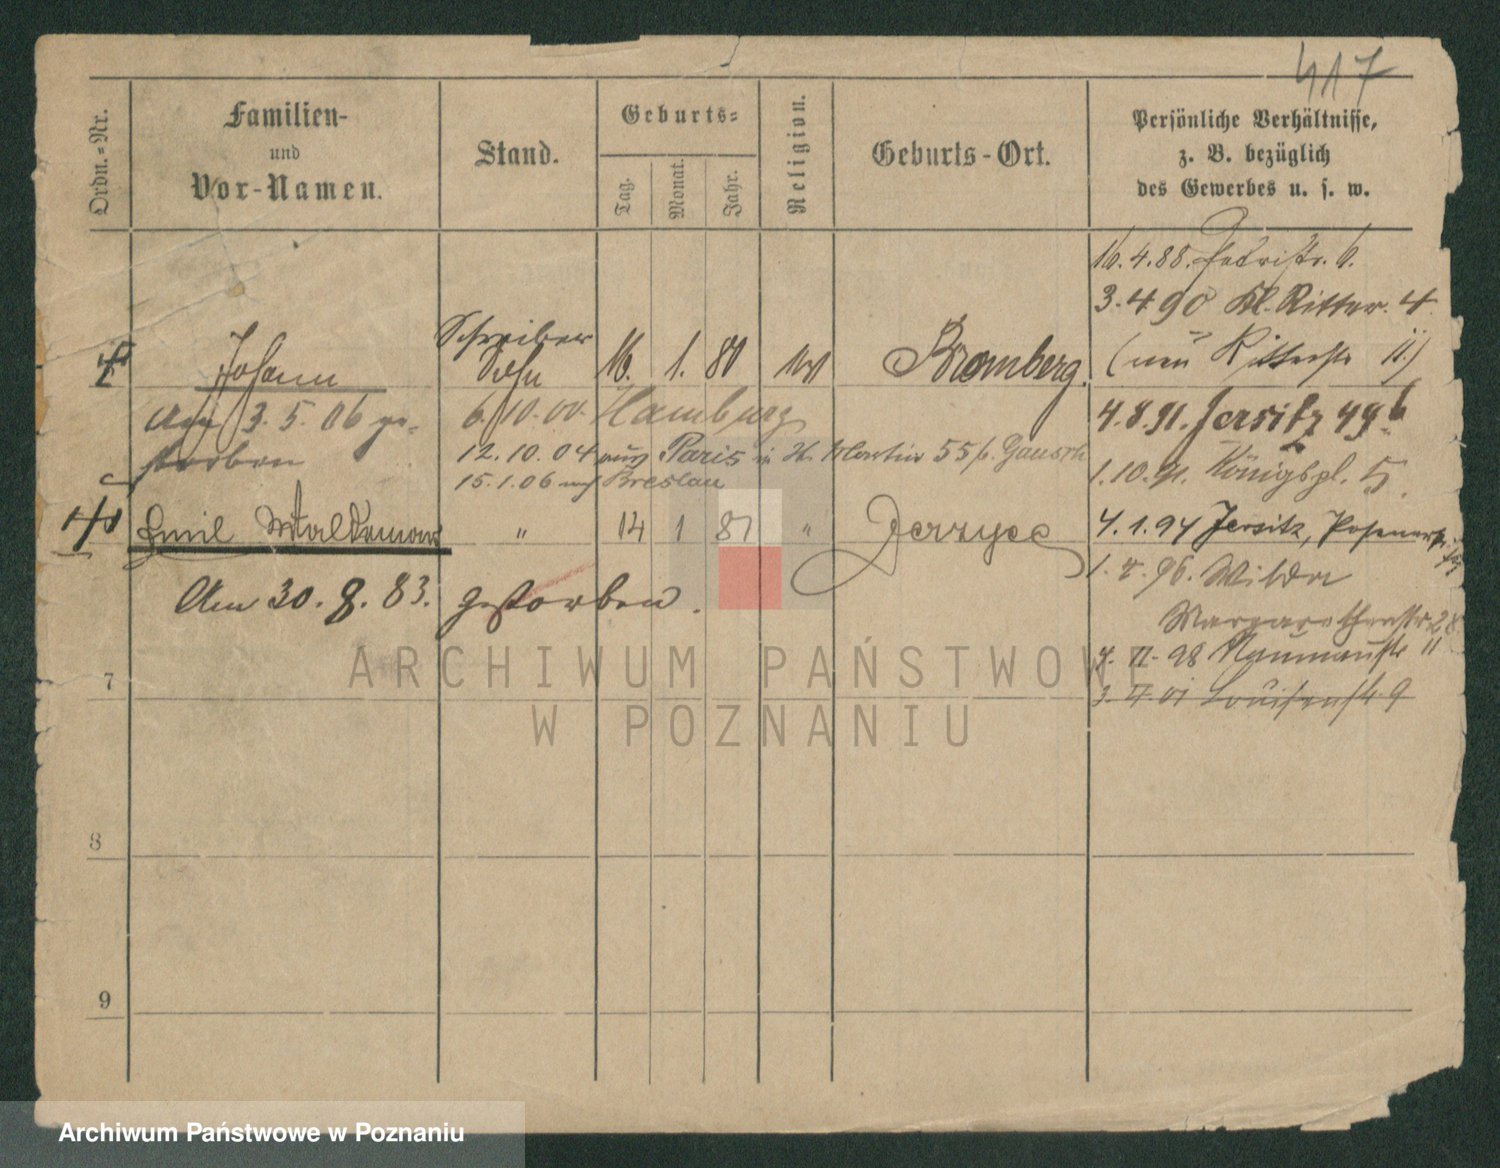 417
Ordn.-Nr.
Familien-
und
Vor-Namen.
Stand.
Geburts-
Tag.
Monat.
Jahr.
Religion.
Geburts-Ort.
Persönliche Verhältnisse,
z. B. bezüglich
des Gewerbes u. s. w.
16.4.88.
3.4 90 Kl. Ritter. 4
Johann
Schreiber
Sohn
16. 1. 80
Bromberg.
(neu Ritterstr 11.)
Am 3.5.06 ge-
storben
6.10.00. Hamburg
4.8.91. Jersitz 49b
12.10.04 aus Paris in St. Martin 55
15.1.06 nach Breslau
1.10.91. Königspl. 5.
Emil Waldemar " 14 1 81 " Jerzyce
4.1.94 Jersitz, Posenerstr.
Am 30.8.83. gestorben.
1.4.96. Wilda
Margarethenstr 28
4. 11. 98 Naumannstr 11
3. 4. 01 Louisenstr. 9
7
8
9
ARCHIWUM PAŃSTWOWE
W POZNANIU
Archiwum Państwowe w Poznaniu